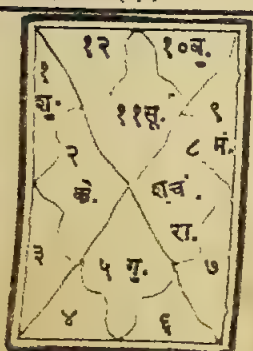 १२ १० बु.
१ शु. ११ सू. ९
२ ८ मं.
के. श चं
रा.
३ ५ गु. ७
४ ६